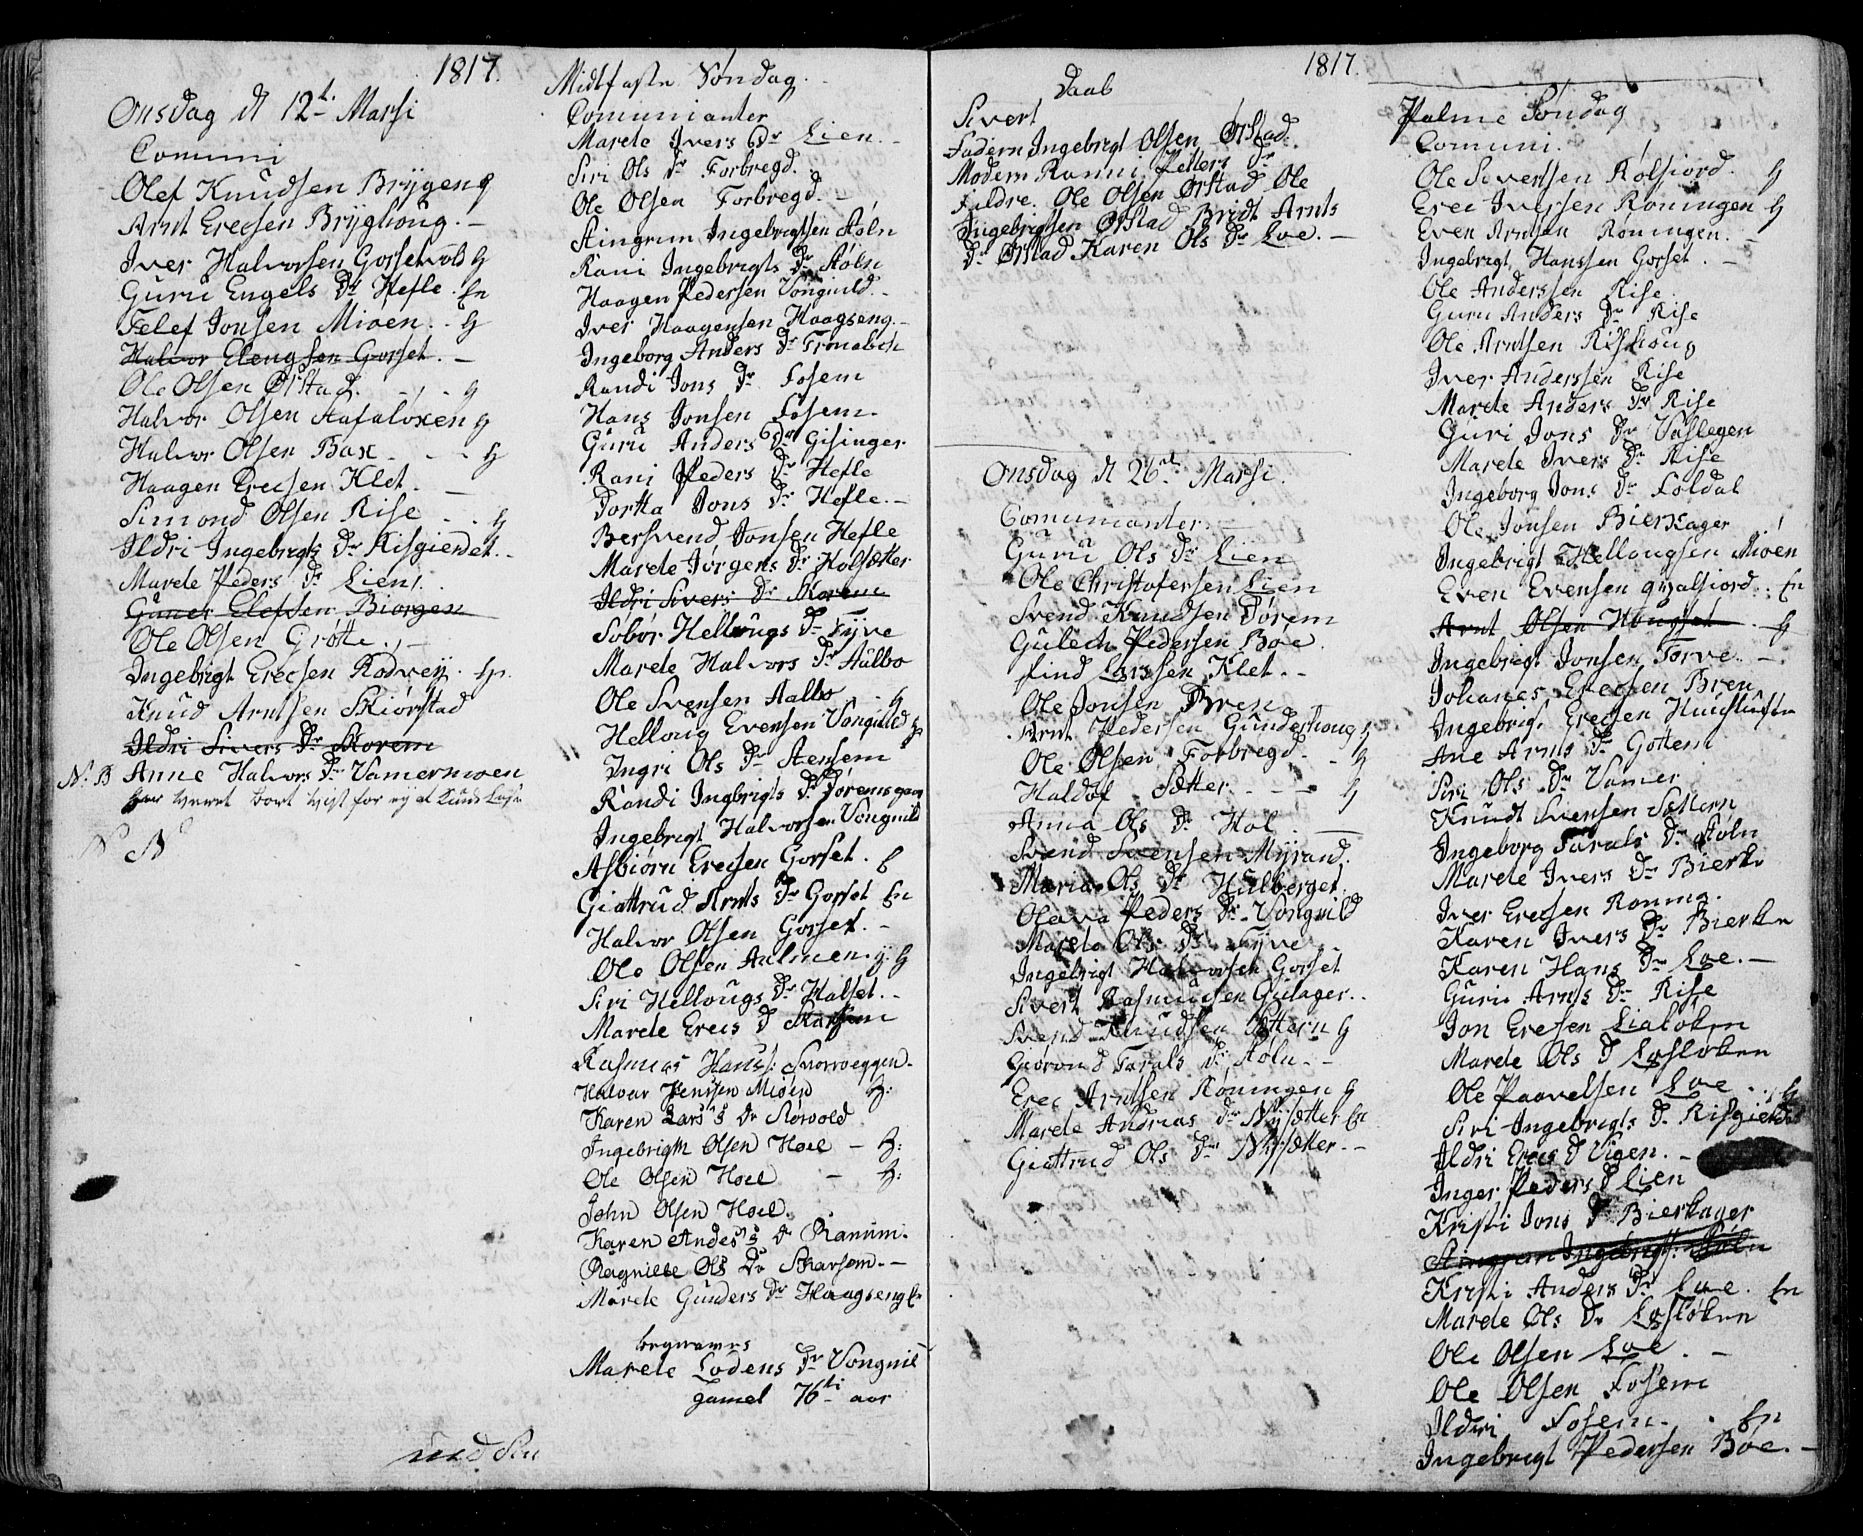 1817.
Onsdag d 12t Marsi
Comuni
Olef Knudsen Brygen g
Arnt Erecsen Bryghoug. –
Iver Halvorsen Gorsetvold g
Guru Engels Dr Hefle. En
Jonsen Mioen. . g
Halvor Elengsen Gorset. –
Ole Olsen Ørstad. . , . g
Halvor Olsen g
Halvor Olsen Bax . . . g
Haagen Erecsen Klet. –
Simond Olsen Rise . . g
Ildri Ingebrigts Dr Risgierdet. –
Marete Peders Dr Lien.
Guner Elefsen Biørgen
Ole Olsen Grøtte. , –
Ingebrigt Erecsen Rodvey.
Knud Arntsen Skiørstad
Ildri Sivers Dr Skorem
N. B Anne Halvors Dr Vamermoen
har været bort
N N
Midtfaste Søndag.
Comunianter
Marete Ivers Dr Lien. –
Siri Ols Dr Forbregd.
Ole Olsen Forbregd. –
Stingrim Ingebrigtsen Støln
Rani Ingebrigts Dr Støln
Haagen Pedersen Vongnild. –
Iver Haagensen Haagseng. –
Ingeborg Anders Dr
Randi Jons Dr Fosem
Hans Jonsen Fosem.
Guru Anders Dr Gisinger
Rani Peders Dr Hefle
Dortta Jons Dr Hefle. –
Bersvend Jonsen Hefle
Marete Jørgens Dr Holsætter
Ildri Sivers Dr Skorem
Sobør Hellougs Dr Tyve
Marete Halvors Dr Aalbo
Ole Svensen Aalbo . g
Helloug Evensen Vongnild g
Ingri Ols Dr Stensem
Randi Ingbrigts Dr
Ingebrigt Halvorsen Vongnild
Asbiørn Erecsen Gorset. g
Giøttrud Arnts Dr Gorset En
Halvor Olsen Gorset. –
Ole Olsen Aalmen. g. g
Siri Hellougs Dr Halset. –
Marete Erecs D
Rasmus Hans: Snorroeggen.
Halvor Jensen Mioen g:
Karen Lars's Dr
Ingebrigth Olsen Hoel – g:
Ole Olsen Hoel – g:
John Olsen Hoel.
Karen Andes's Dr Ranum.
Ragnille Ols Dr Skarsem. –
Marete Gunders Dr Haagseng En
begraves
Marete Lodens Dr Vongnil
gamel 76ti aar
1817.
Daab
Sivert
Fadern Ingebrigt Olsen Ørstad.
Modern Ranni Petters Dr
Faldre. Ole Olsen Ørstad Ole
Ingebrigtsen Ørstad Bridt Arnts
Dr Ørstad Karen Ols Dr Loe. –
Onsdag d 26de Marsi.
Comunianter. –
Guru Ols Dr Lien
Ole Christofersen Lien
Svend Knudsen Dørem
Gulech Pedersen Boe.
find Larssen Klet. .
Ole Jonsen Bren
Arnt Pedersen Gundershoug g
Ole Olsen Forbregd. . g
Haldof Sætter . . – g
Anna Ols Dr Hol . –
Svend Svensen Myrand.
Maria Ols Dr Hulberget.
Oleva Peders Dr Vongnild
Marete Ols Dr Tyve .
Ingebrigt Halvorsen Gorset
Sivert Rasmusen Gulager. .
Svend Knudsen Sættern g
Giørond Taralds Dr Støln. –
Erec Arntsen Røningen g
Marete Andreas Dr Nysætter En
Giøttrud Ols Dr Nysætter. –
Palme Søndag
Comuni.
Ole Siverssen Rolsiord. g
Erec Iversen Røningen g
Even Arntsen Røningen. –
Ingebrigt Hanssen Gorset. –
Ole Anderssen Rise.
Guru Anders Dr Rise
Ole Arntsen Rishoug
Iver Anderssen Rise
Marete Anders Dr Rise
Guri Jons Dr Vaslegen
Marete Ivers Dr Rise
Ingeborg Jons Dr Foldal
Ole Jonsen Bierkager . !
Ingebrigt Hellougsen Mioen
Even Evensen qvalsiord. . En
Arnt Olsen Hougset . g
Ingebrigt Jonsen Torve. –
Johanes Erecsen Bren
Ingebrigt Erecsen
Ane Arnts Dr Gottem
Siri Ols Dr Vamer
Knudt Svensen Sættern
Ingeborg Taralds Dr Støln
Marete Ivers Dr Bierke
Iver Erecsen Ronning.
Karen Ivers Dr Bierken
Karen Hans Dr Loe. –
Guru Arnts Dr Rise
Jon Erecsen Lialøken
Marete Ols D Losløken
Ole Paavelsen Loe . . g
Siri Ingebrigts Dr Risgierdet
Ildri Erecs D Vigen. –
Inger Peders D Lien
Kristi Jons D Bierkager
Stingrim Ingebrigts: Støln
Kristi Anders Dr Loe. En
Marete Ols Dr Losløken
Ole Olsen Loe . –
Ole Olsen Fosem
Ildri Fosem. . En
Ingebrigt Pedersen Boe. –